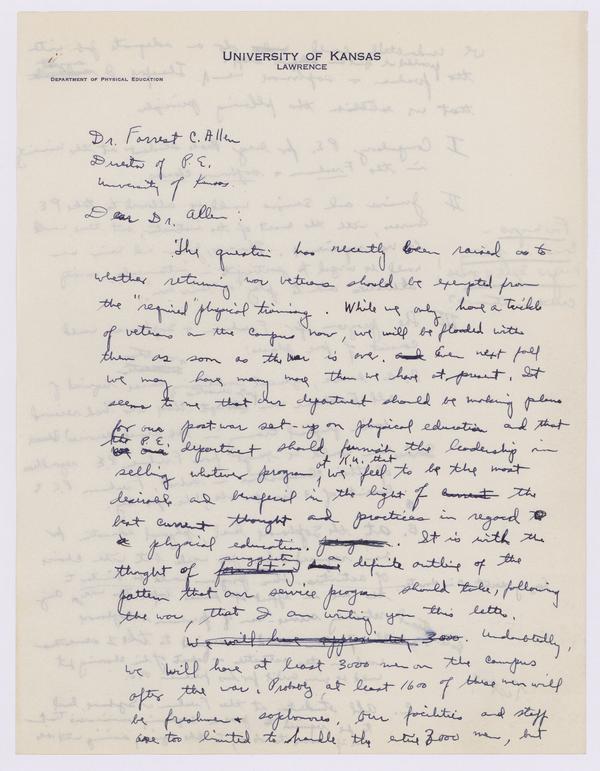 UNIVERSITY OF KANSAS
LAWRENCE
DEPARTMENT OF PHYSICAL EDUCATION
Dr. Forrest C. Allen
Director of P.E.
University of Kansas.
Dear Dr. Allen:
The question has recently been raised as to
whether returning war veterans should be exempted from
the "required" physical training. While we only have a trickle
of veterans on the campus now, we will be flooded with
them as soon as the war is over. and Even next fall
we may have many more than we have at present. It
seems to me that our department should be making plans
for our post war set-up on physical education and that
the P.E.
department should furnish the leadership in
at K.U. that
selling whatever program, we feel to be the most
desirable and beneficial in the light of current the
best current thought and practices in regard to
physical education. It is with the
suggesting a
thought of definite outline of the
pattern that our service program should take, following
the war, that I am writing you this letter.
We will have approximately 3000. Undoubtedly,
we will have at least 3000 men on the campus
after the war. Probably at least 1600 of these men will
be freshmen & sophomores. Our facilities and staff
are too limited to handle the entire 3000 men, but